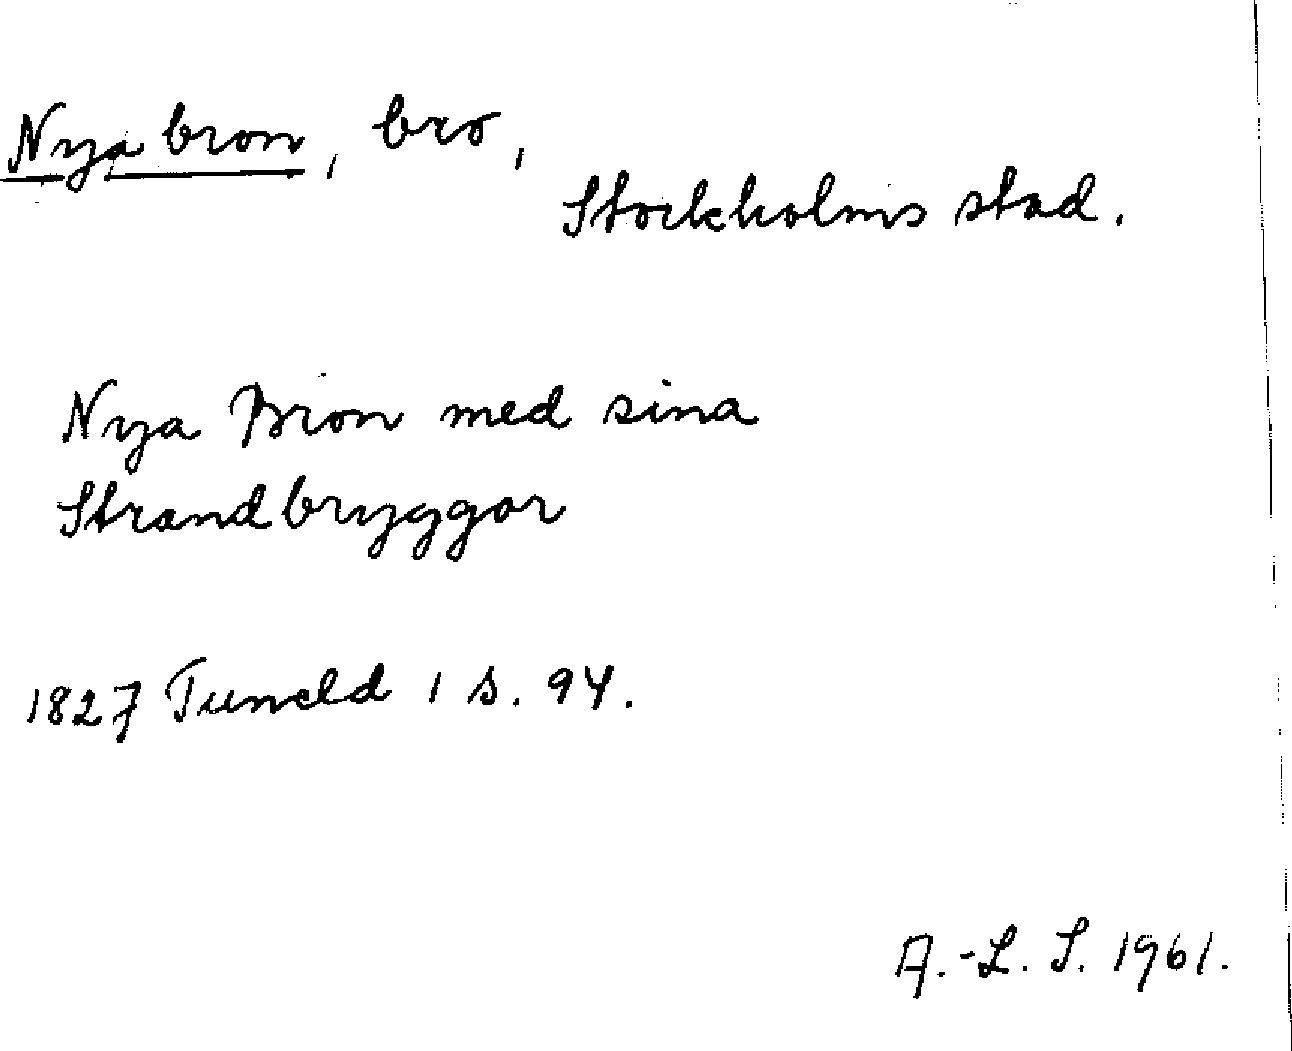 Nya bron, bro,
Stockholms stad.
Nya Bron med sina
Strandbryggor
1827 Tuneld 1 s. 94.
A.-L. S. 1961.